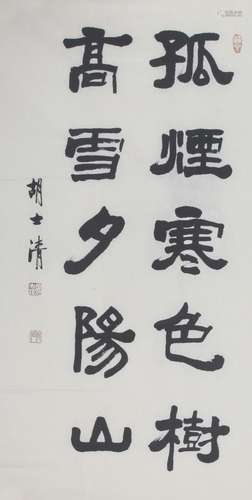 孤煙寒色樹
高雪夕陽山
胡士清